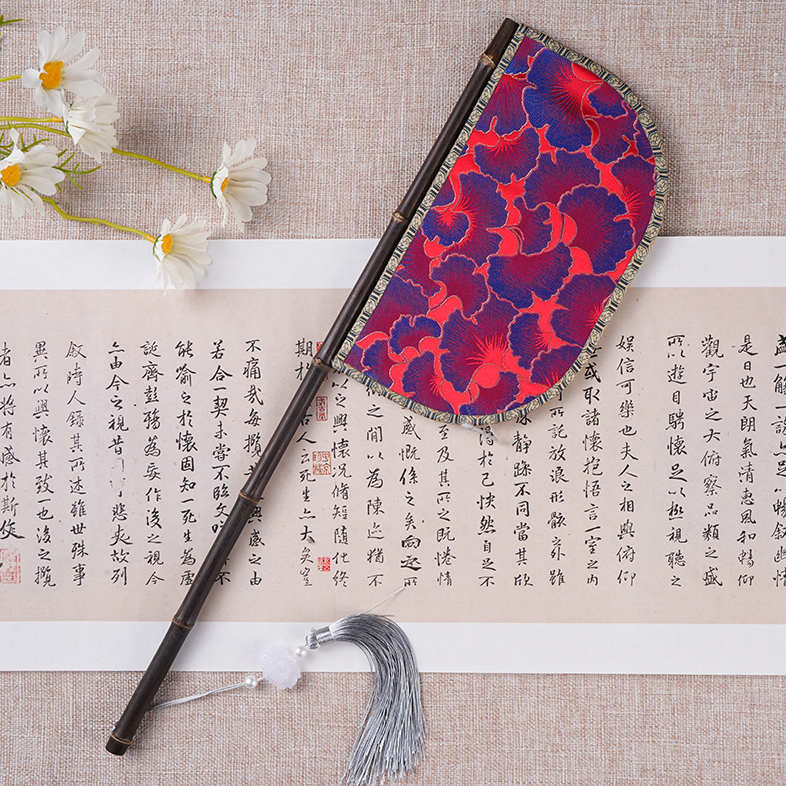 一觴一詠亦足以暢叙幽情
是日也天朗氣清惠風和暢仰
觀宇宙之大俯察品類之盛
所以遊目騁懷足以極視聽之
娛信可樂也夫人之相與俯仰
或取諸懷抱悟言一室之內
所託放浪形骸之外雖
靜躁不同當其欣
得於己快然自足不
至及其所之既惓情
感慨係之矣向之所
之間以為陳迹猶不
以之興懷況脩短隨化終
期於 古人云死生亦大矣豈
不痛哉每攬 興感之由
若合一契未嘗不臨文 不
能喻之於懷固知一死生為虛
誕齊彭殤為妄作後之視今
亦由今之視昔 悲夫故列
叙時人錄其所述雖世殊事
異所以興懷其致一也後之攬
者亦將有感於斯文